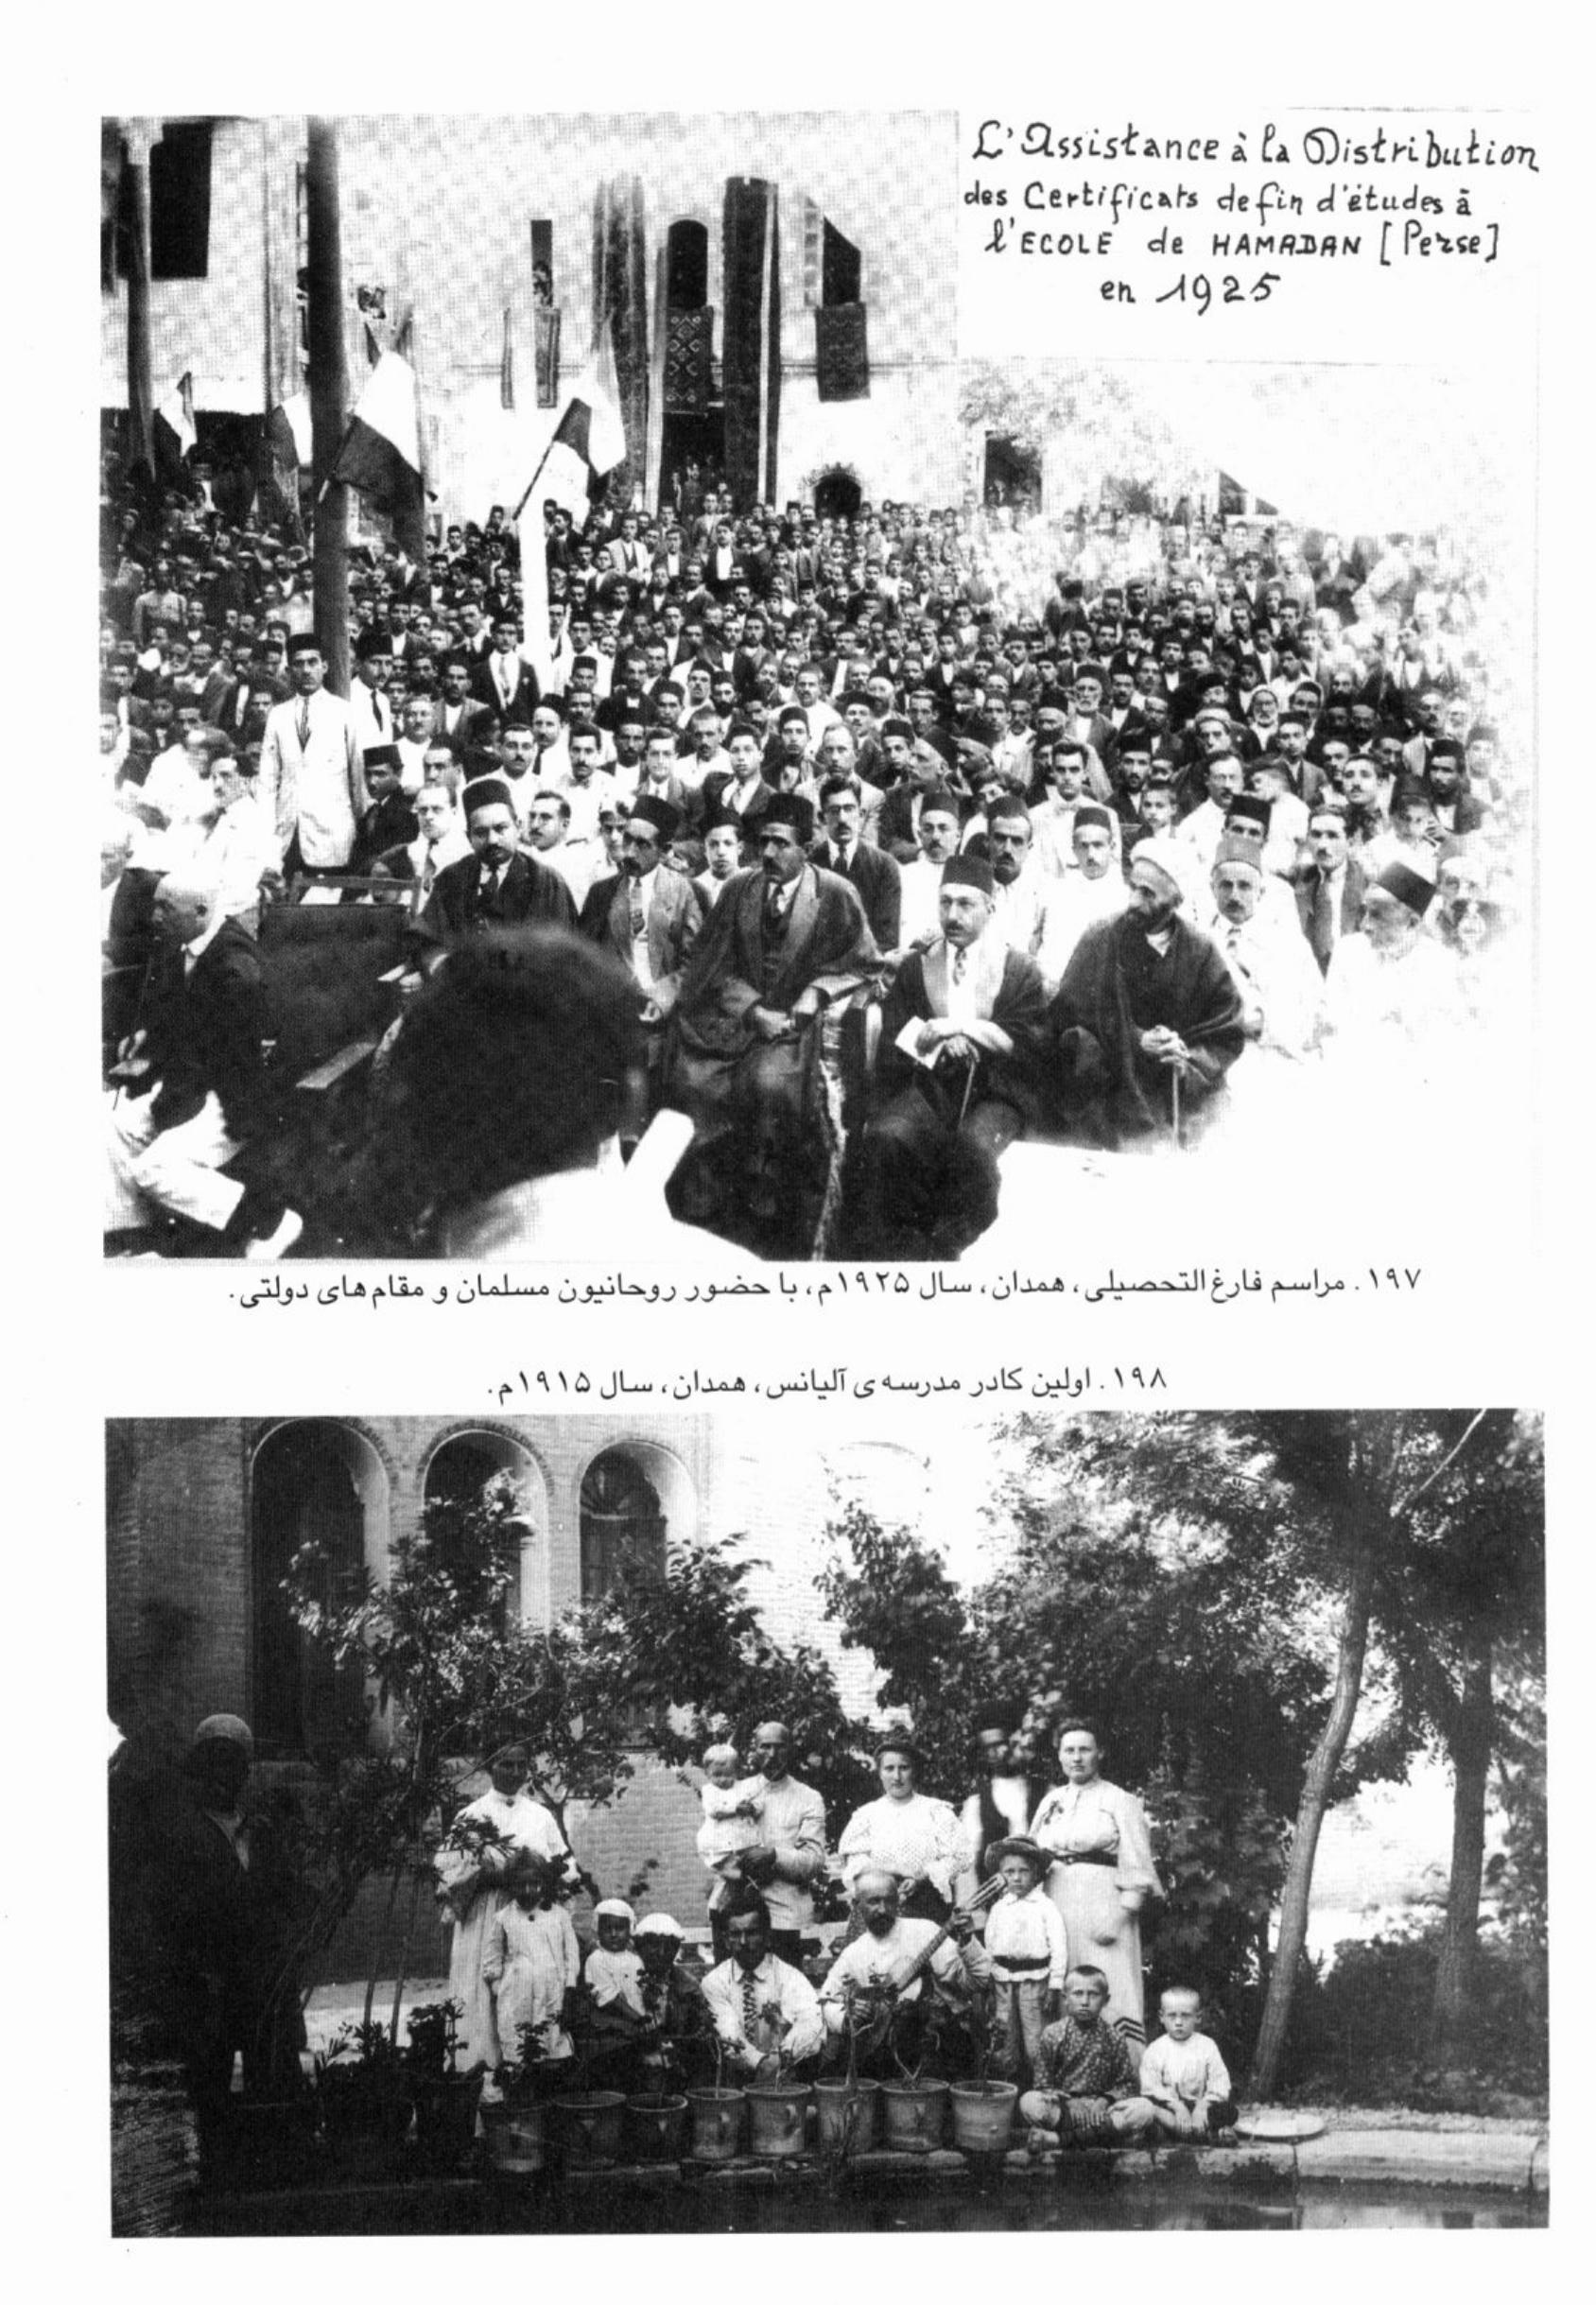 L'Assistance à la Distribution
des Certificats de fin d'études à
l'ECOLE de HAMADAN [Perse]
en 1925
۱۹۷. مراسم فارغ‌التحصیلی، همدان، سال ۱۹۲۵م، با حضور روحانیون مسلمان و مقام‌های دولتی.
۱۹۸. اولین کادر مدرسه‌ی آلیانس، همدان، سال ۱۹۱۵م.